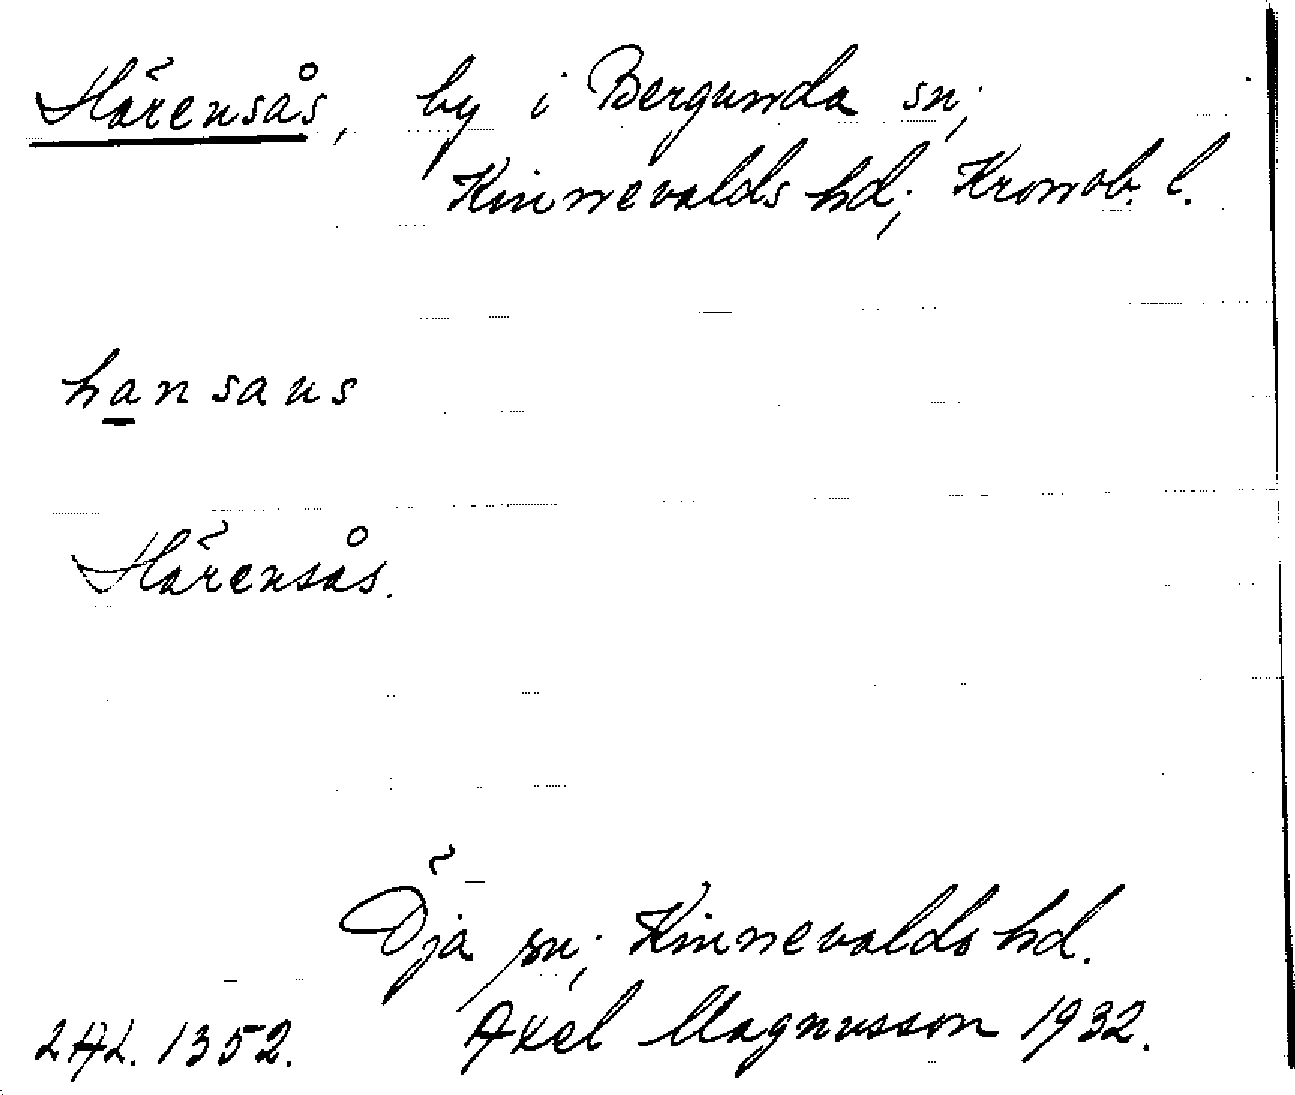 Härensås, by i Bergunda sn;
Kinnevalds hd; Kronob. l.
hansaus
Härensås.
Öja sn; Kinnevalds hd.
LAL. 1352. Axel Magnusson 1932.